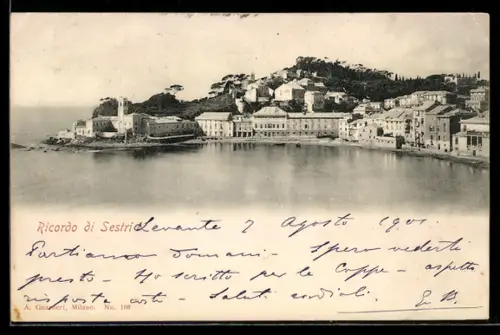 Ricordo di Sestri Levante 7 Agosto 1901.
Partiamo domani - Spero vederti
presto - Ho scritto per le Coppe - aspetto
risposta - Saluti cordiali. E. B.
A. Guarneri, Milano. No. 108